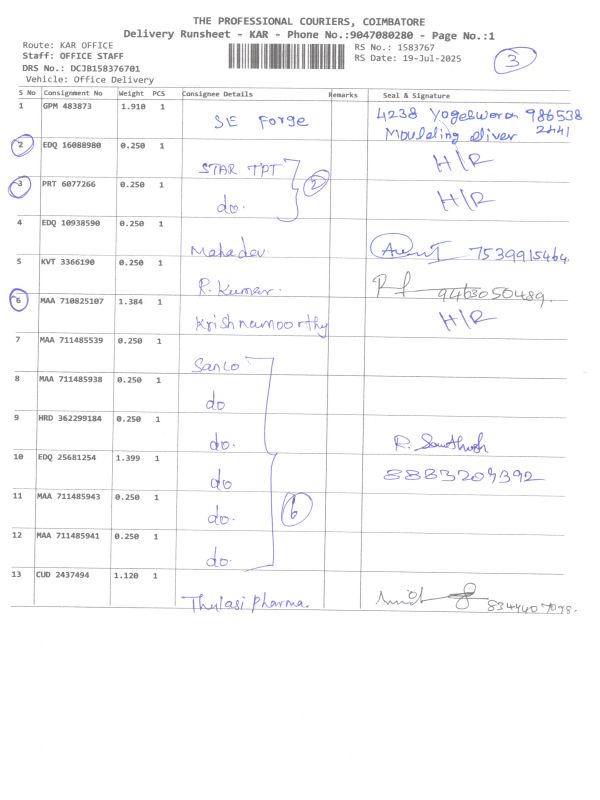 THE PROFESSIONAL COURIERS, COIMBATORE
Delivery Runsheet - KAR - Phone No.:9047080280 - Page No.:1
Route: KAR OFFICE
Staff: OFFICE STAFF
DRS No.: DCJB158376701
Vehicle: Office Delivery
RS No.: 1583767
RS Date: 19-Jul-2025
3
S No Consignment No Weight PCS Consignee Details Remarks Seal & Signature
1 GPM 483873 1.910 1 SE Forge 4238 986538
Moulding 2441
2 EDQ 16088980 0.250 1 STAR TPT H/R
3 PRT 6077266 0.250 1 do. 2 H/R
4 EDQ 10938590 0.250 1 Mahadev. 7539915464.
5 KVT 3366190 0.250 1 R. Kumar. 9463050489.
6 MAA 710825107 1.384 1 Krishnamoorthy H/R
7 MAA 711485539 0.250 1 Sanco
8 MAA 711485938 0.250 1 do
9 HRD 362299184 0.250 1 do. R.
10 EDQ 25681254 1.399 1 do 8883209392
11 MAA 711485943 0.250 1 do. 6
12 MAA 711485941 0.250 1 do.
13 CUD 2437494 1.120 1 Thulasi pharma. 8344407098.